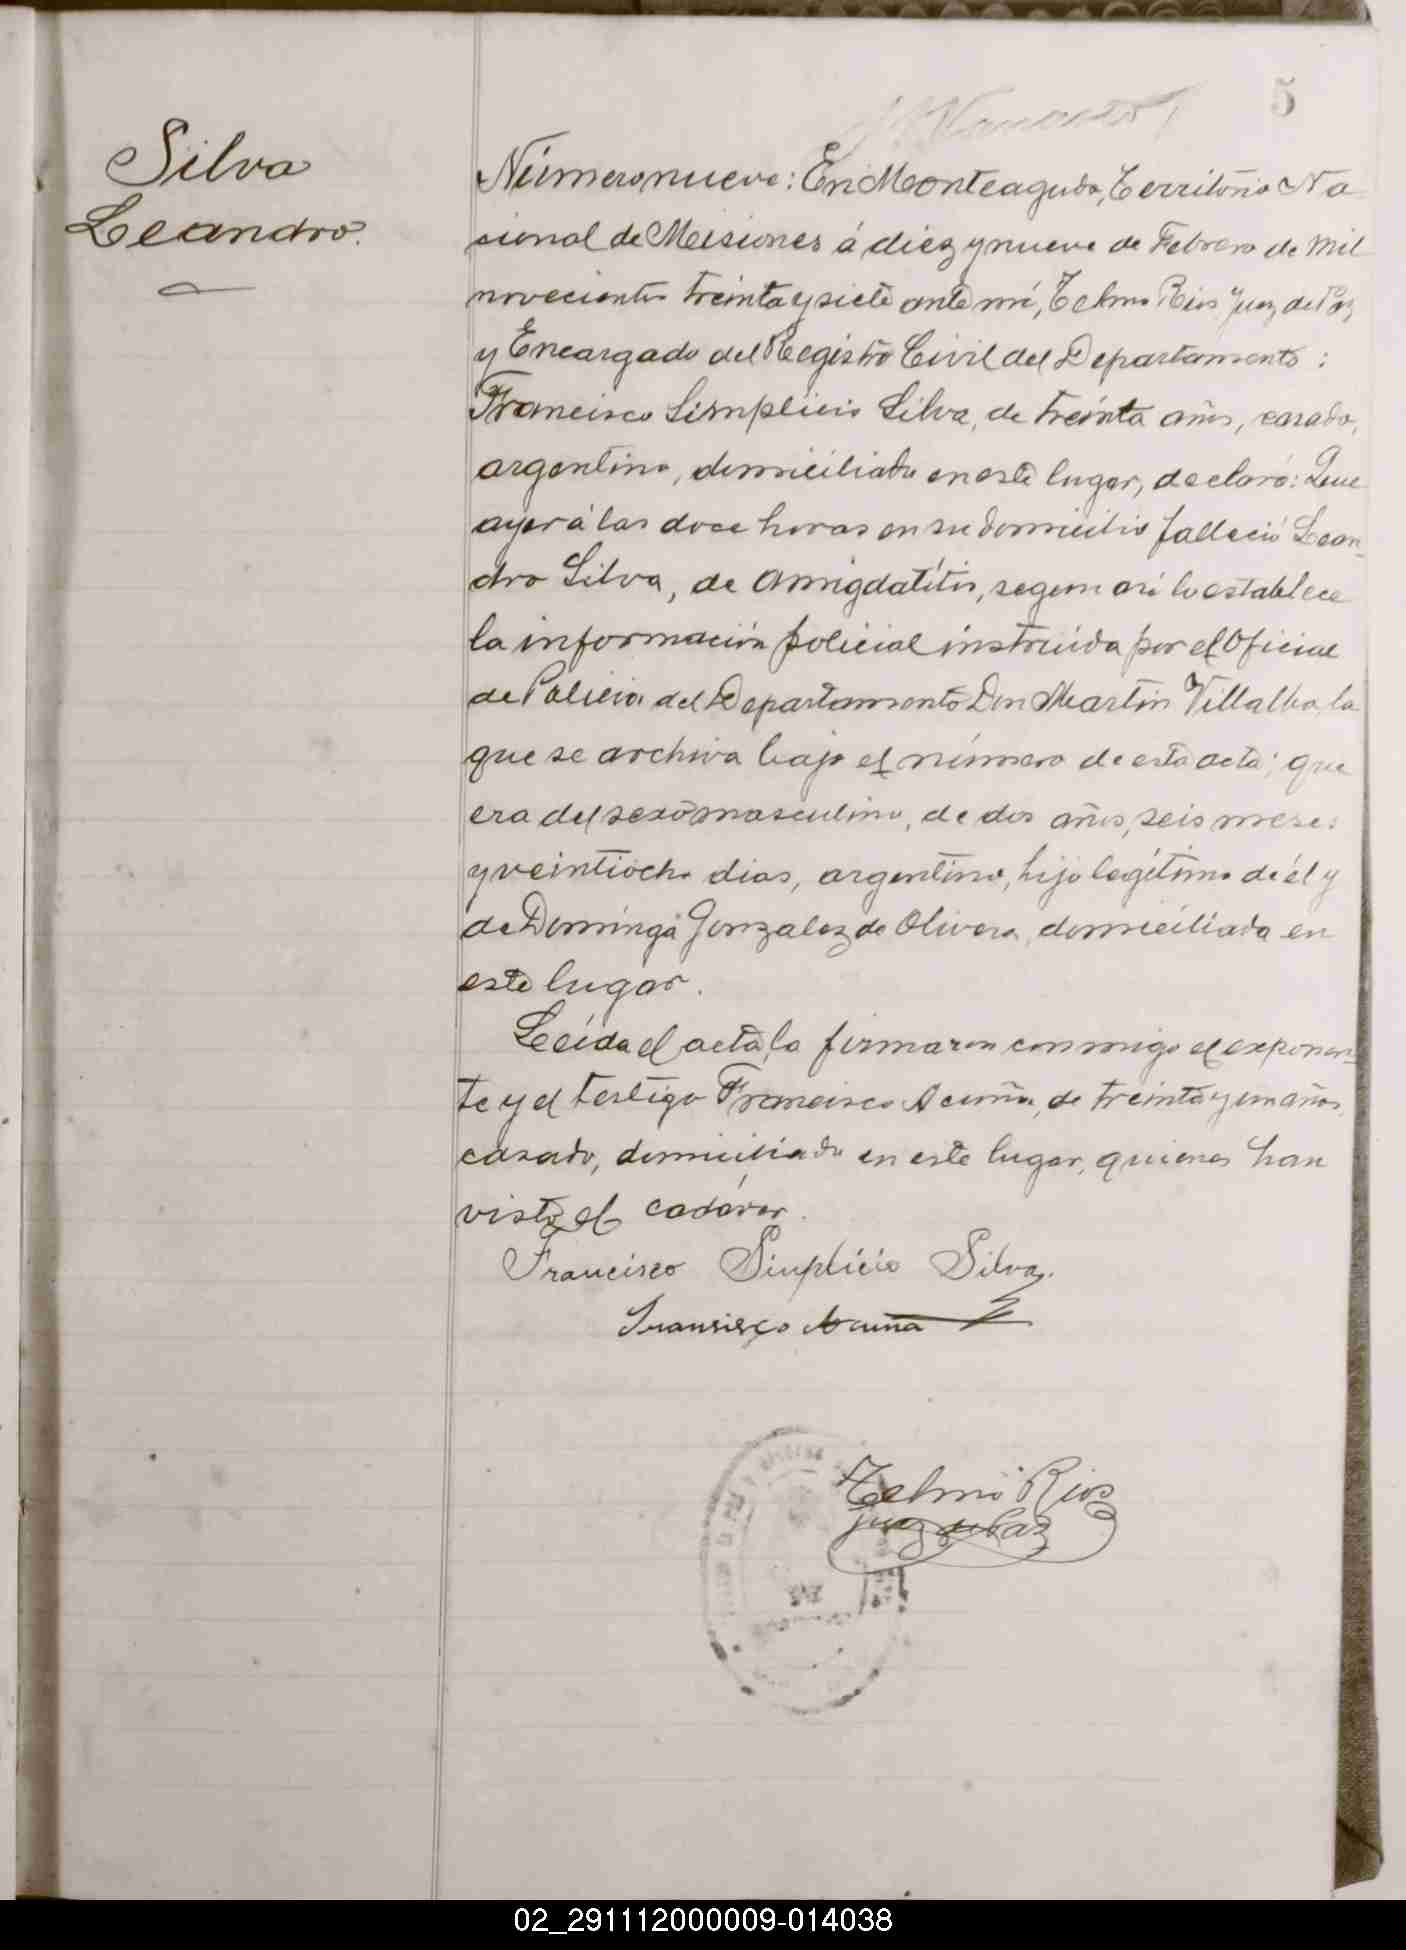 5
Silva
Leandro.
Número nueve: En Monteagudo, Territorio Na
cional de Misiones á diez y nueve de Febrero de mil
novecientos treinta y siete ante mí, Telmo Rios Juez de Paz
y Encargado del Registro Civil del Departamento:
Francisco Simplicio Silva, de treinta años, casado,
argentino, domiciliado en este lugar, declaró: Que
ayer á las doce horas en su domicilio falleció Lean-
dro Silva, de amigdatitis, segun así lo establece
la información policial instruida por el Oficial
de Policia del Departamento Don Martin Villalba, la
que se archiva bajo el número de esta acta; que
era del sexo masculino, de dos años, seis meses
y veintiocho dias, argentino, hijo legítimo de él y
de Dominga Gonzalez de Olivera, domiciliada en
este lugar.
Leída el acta, la firmaron conmigo el exponen-
te y el testigo Francisco Acuña, de treinta y un años,
casado, domiciliado en este lugar, quienes han
visto el cadáver.
Francisco Simplicio Silva.
Fransisco Acuña
Telmo Rios
Juez de Paz
02_291112000009-014038